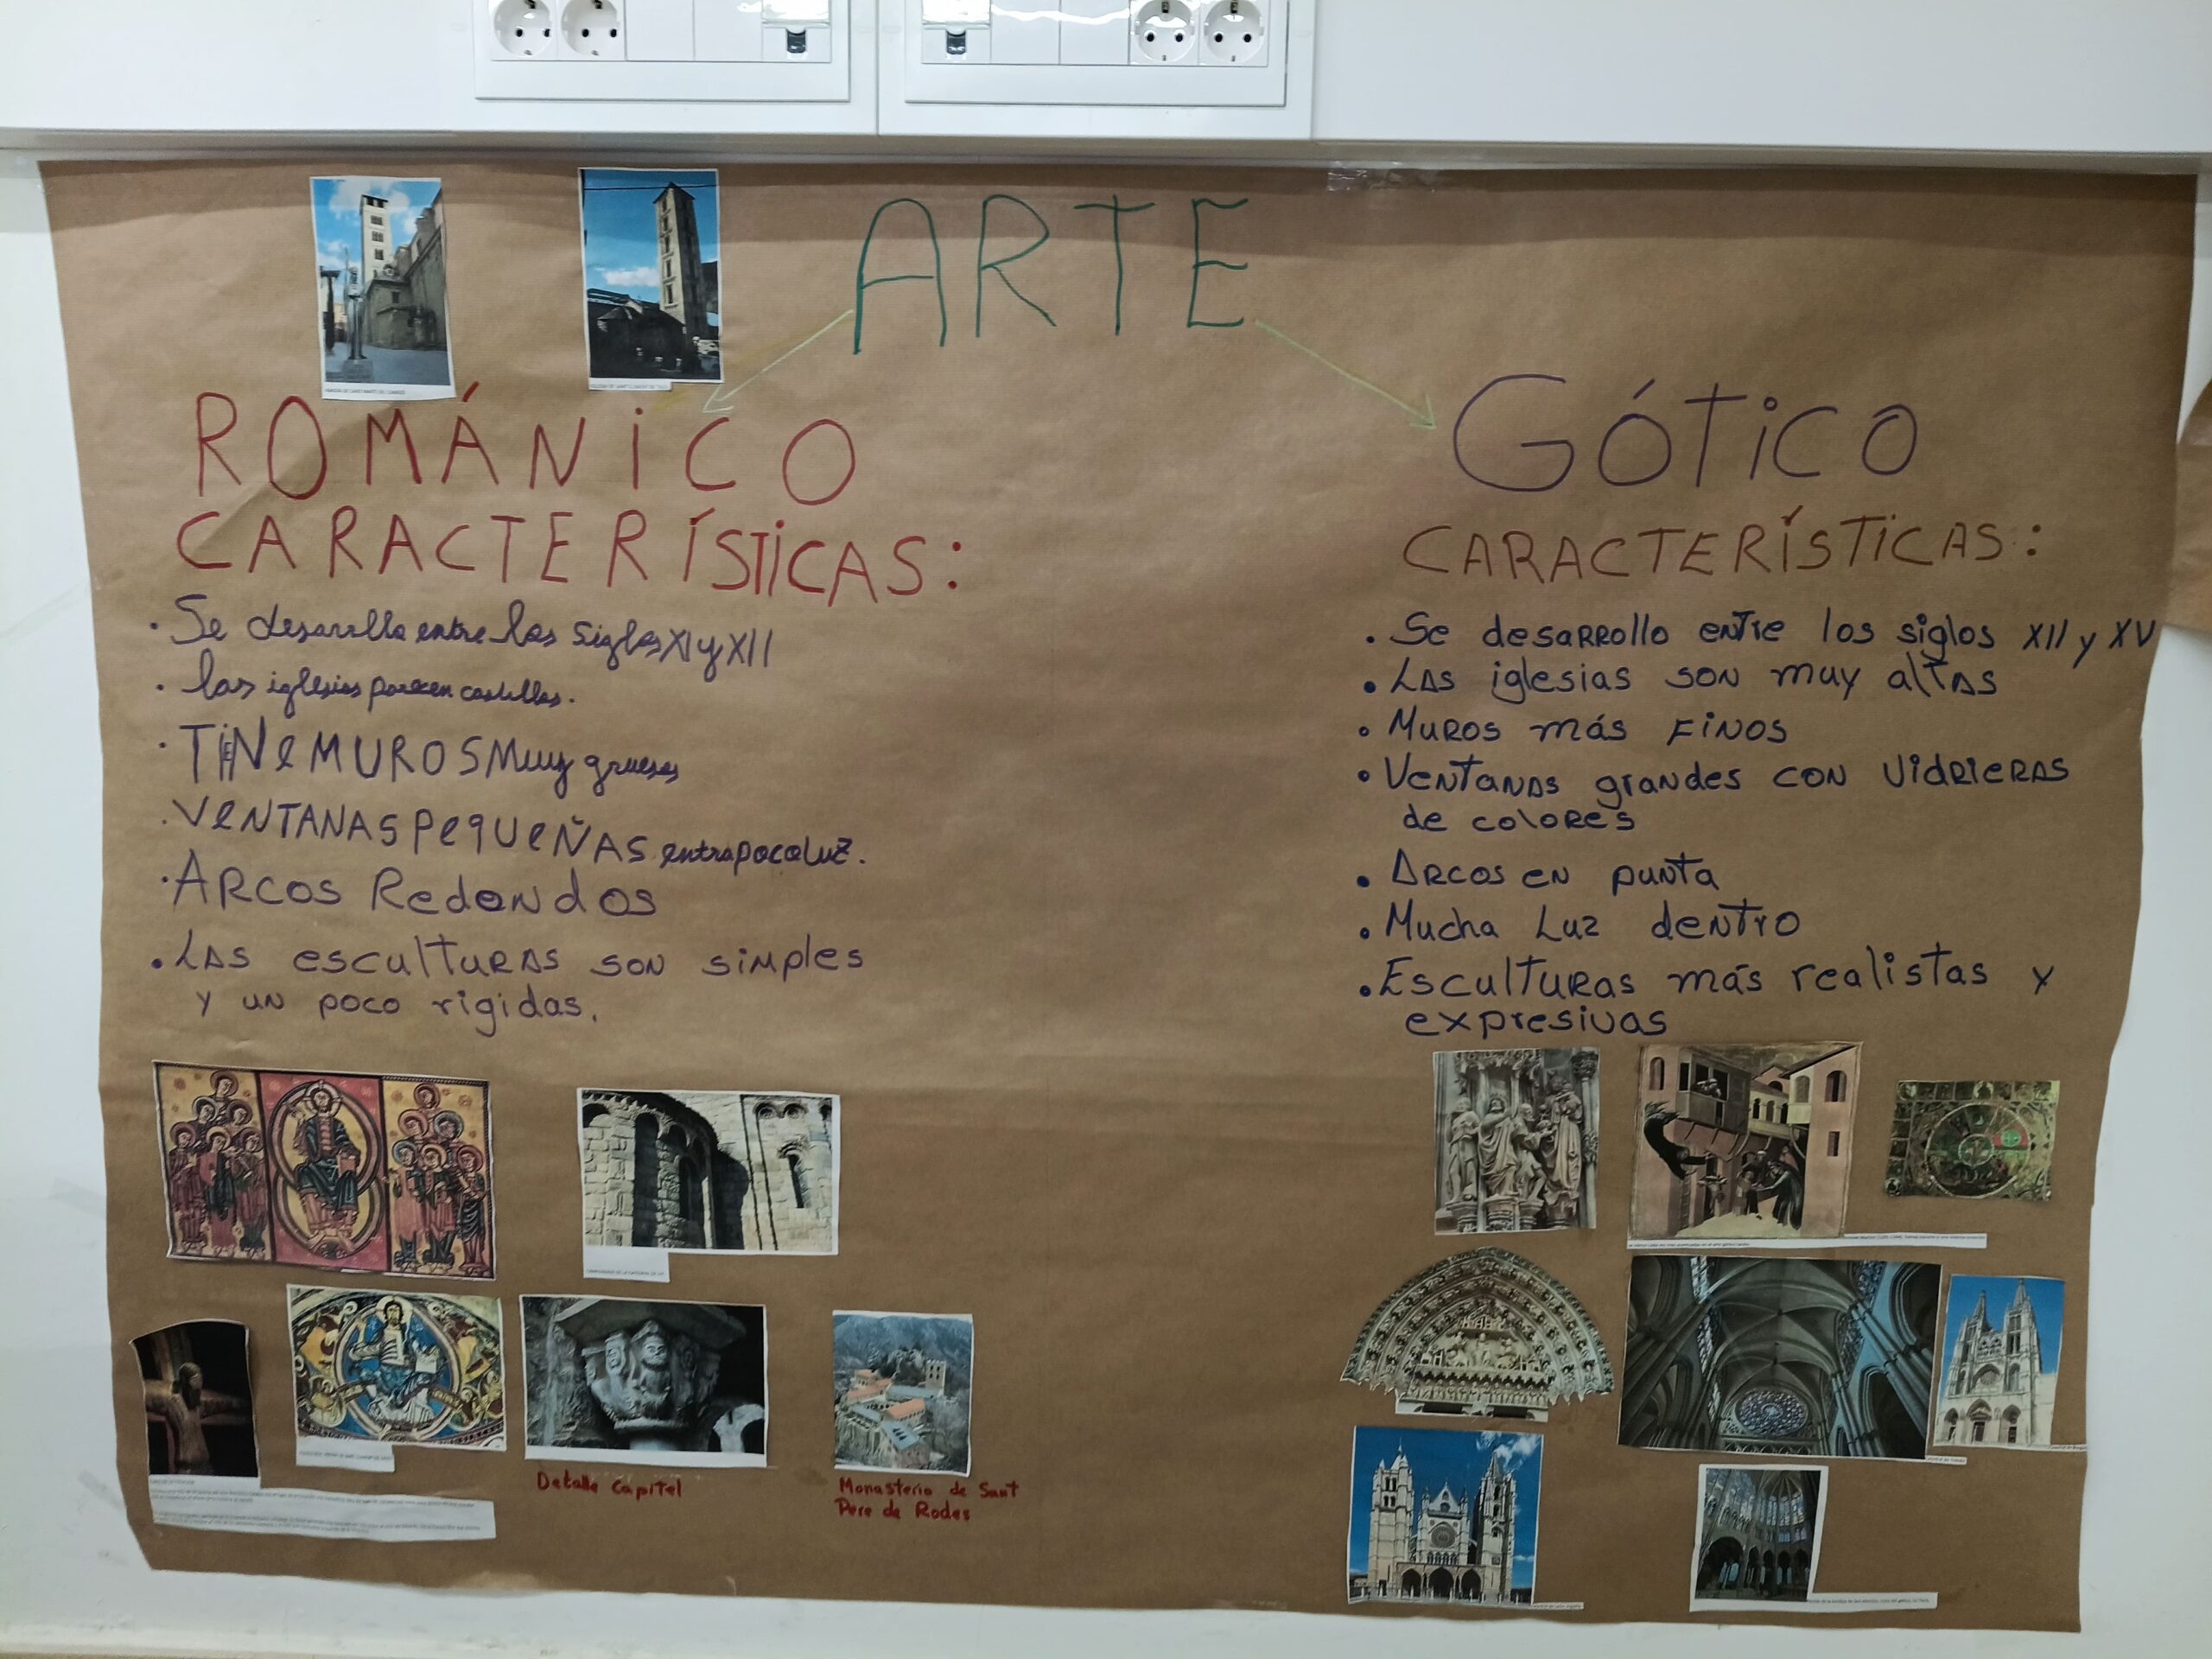 ARTE
ROMÁNiCO
CARACTERÍSTiCAS:
· Se desarrolla entre los siglos XI y XII
· las iglesias parecen castillos.
· TiENe MUROS Muy gruesos
· VeNTANAS PeqUeÑAS entra poca luz.
· ARCOS Redondos
· LAS esculturas son simples
y un poco rigidas.
Detalle Capitel
Monasterio de Sant
Pere de Rodes
GÓTiCO
CARACTERÍSTiCAS:
· Se desarrollo entre los siglos XII y XV
· LAS iglesias son muy altas
· Muros más finos
· Ventanas grandes con vidrieras
de colores
· Arcos en punta
· Mucha Luz dentro
· Esculturas más realistas y
expresivas